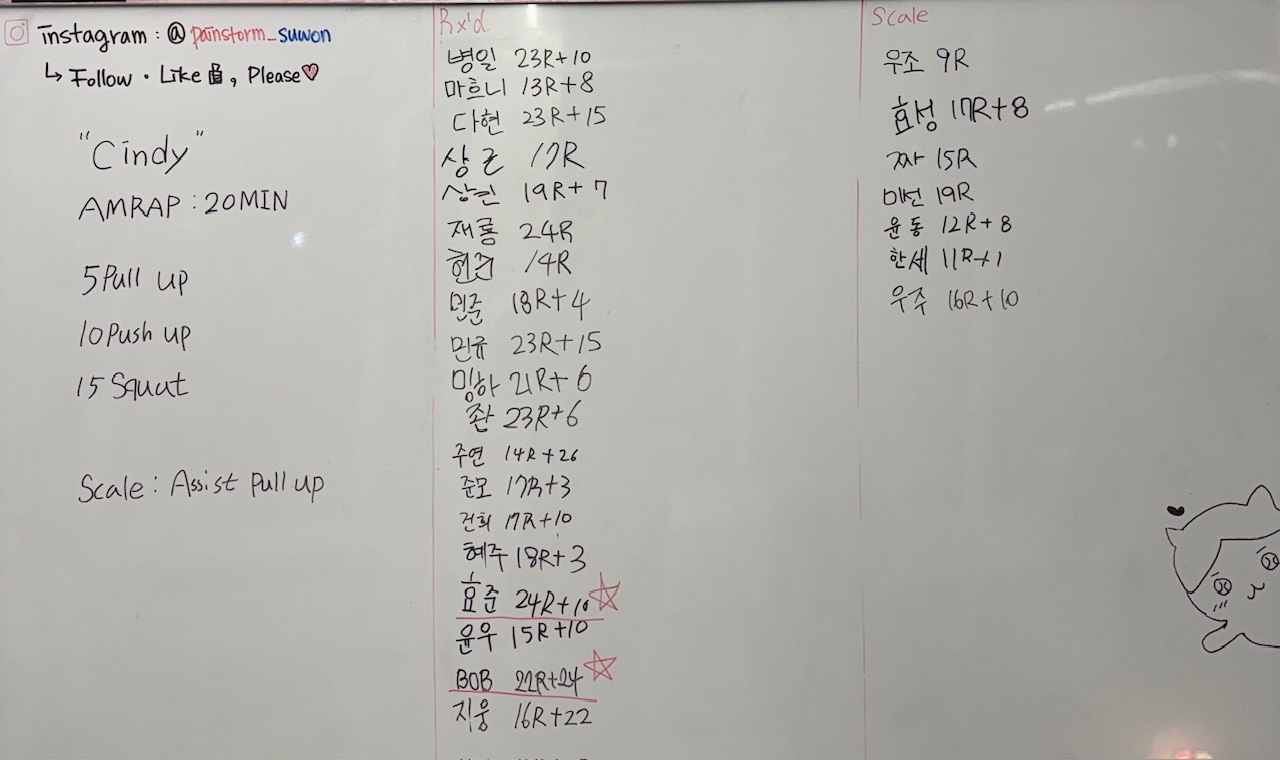 instagram : @ painstorm_suwon
↳ Follow · Like👍, Please♡
"Cindy"
AMRAP : 20MIN
5 Pull up
10 Push up
15 Squat
Scale : Assist Pull up
Rx'd.
병일 23R+10
마흐니 13R+8
다현 23R+15
상근 17R
상현 19R+7
재룡 24R
현준 14R
민준 18R+4
민규 23R+15
밍하 21R+6
좐 23R+6
주연 14R+26
준모 17R+3
건희 17R+10
혜주 18R+3
효준 24R+10
윤우 15R+10
BOB 22R+24
지웅 16R+22
Scale
우조 9R
효성 17R+8
짜 15R
미선 19R
윤동 12R+8
한세 11R+1
우주 16R+10